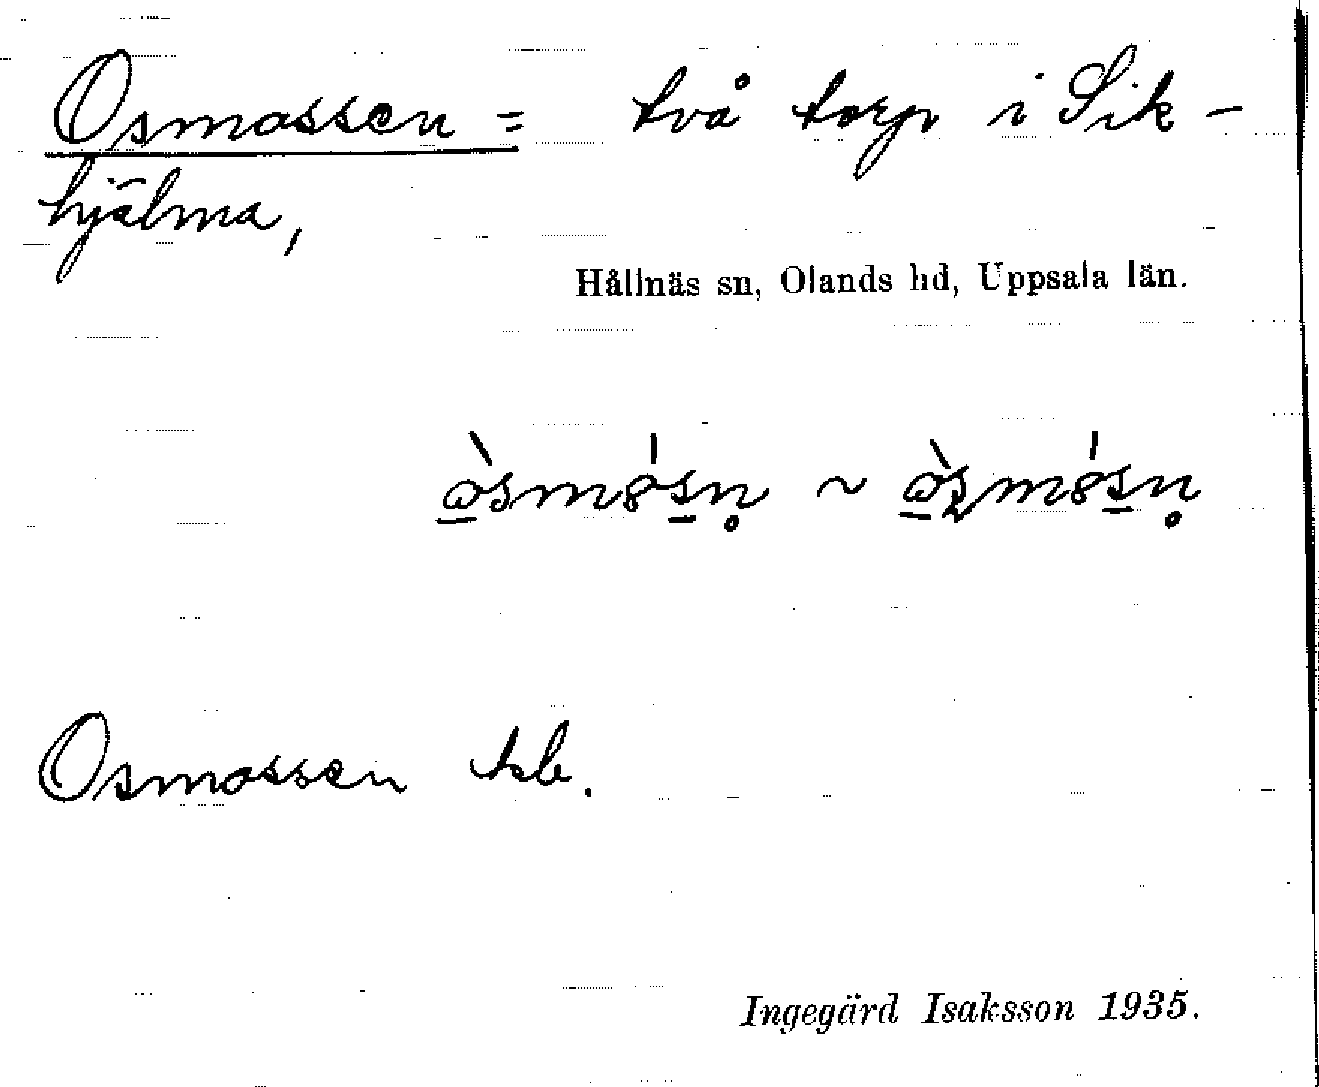 Osmossen = två torp i Sik-
hjälma,
Hållnäs sn, Olands hd, Uppsala län.
Osmossen
Ingegärd Isaksson 1935.